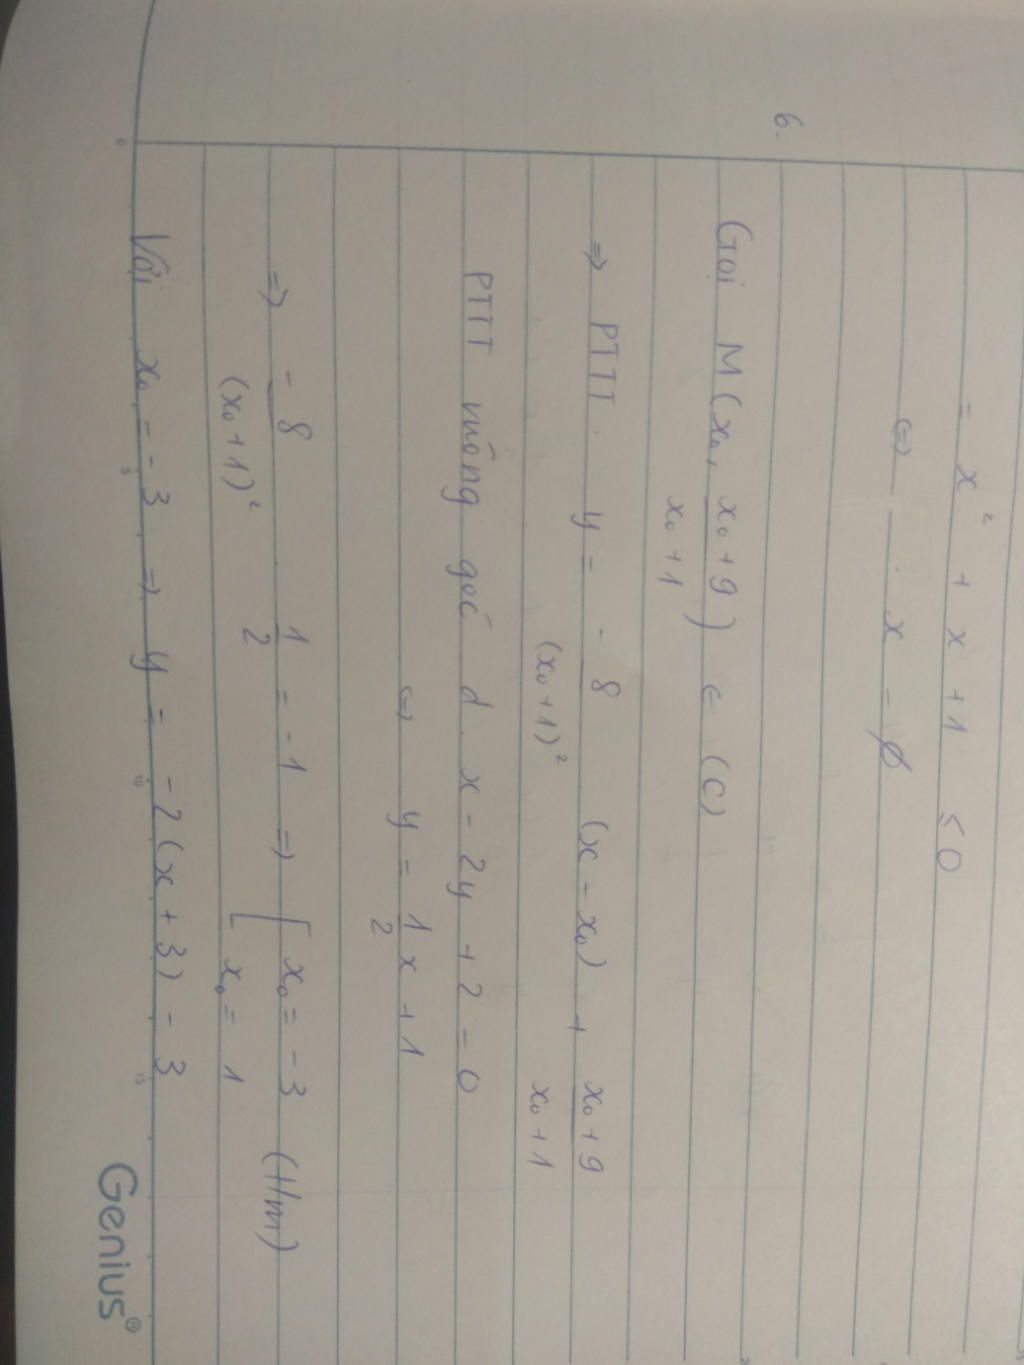 = x² + x + 1 ≤ 0
⇔ x = ∅
6.
Gọi M(x₀, (x₀ + 9)/(x₀ + 1)) ∈ (C)
⇒ PTTT: y = - 8/(x₀ + 1)² (x - x₀) + (x₀ + 9)/(x₀ + 1)
PTTT vuông góc d. x - 2y + 2 = 0
⇔ y = 1/2 x + 1
⇒ - 8/(x₀ + 1)² 1/2 = -1 ⇒ [ x₀ = -3 (t/m)
x₀ = 1
Với x₀ = -3 ⇒ y = -2(x + 3) - 3
0 5 10 15
Genius®